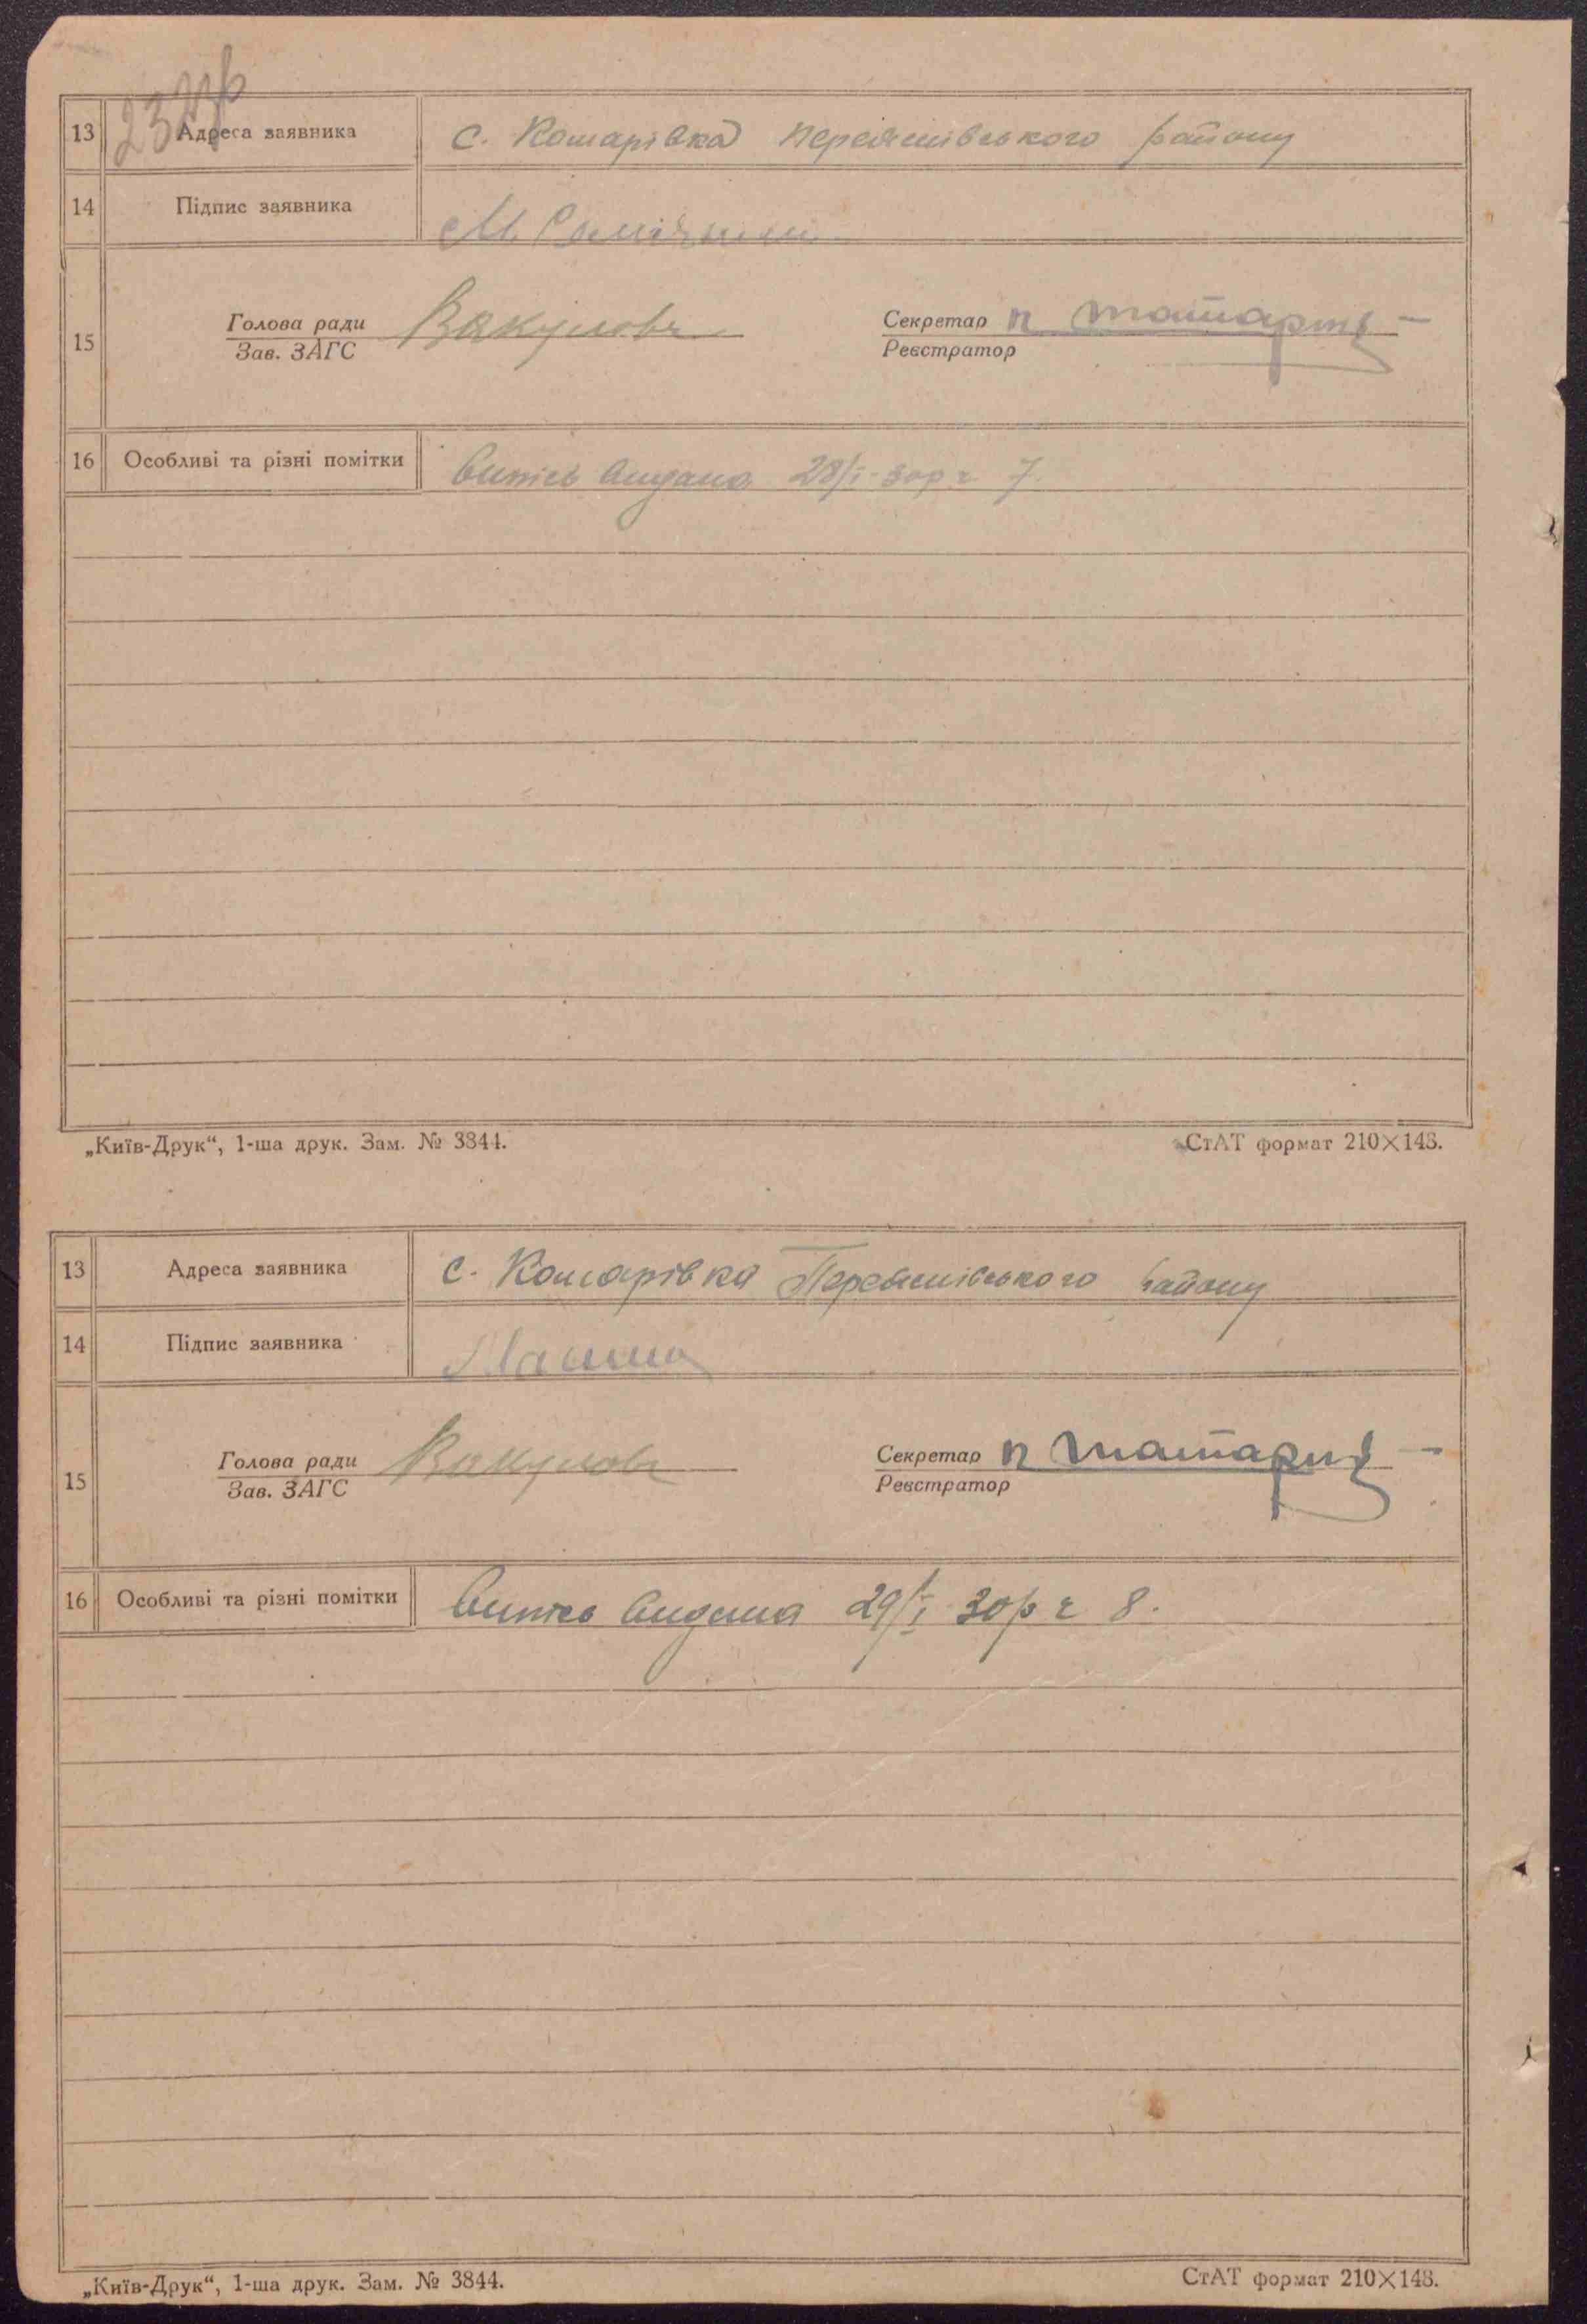 237зв
13 Адреса заявника с. Комарівка Переяслівського району
14 Підпис заявника М.
15 Голова ради Вакулова Секретар П Татарин
Зав. ЗАГС Реєстратор
16 Особливі та різні помітки Випись видана 28/I-30р ч 7.
„Київ-Друк“, 1-ша друк. Зам. № 3844. СтАТ формат 210×148.
13 Адреса заявника с. Комарівка Переяслівського району
14 Підпис заявника
15 Голова ради Вакулова Секретар П Татарин
Зав. ЗАГС Реєстратор
16 Особливі та різні помітки Випись видана 29/I 30р ч 8.
„Київ-Друк“, 1-ша друк. Зам. № 3844. СтАТ формат 210×148.